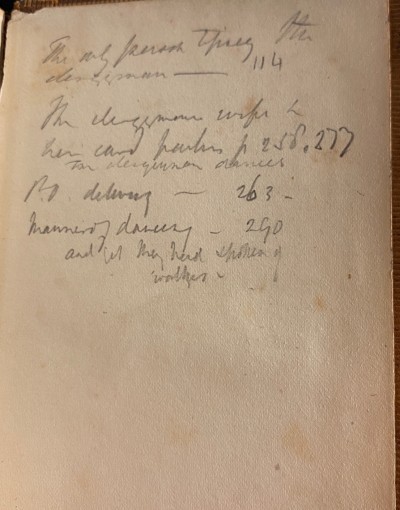 The only person they
clergyman — 114
The clergyman's wife &
her card parties p 258, 277
The clergyman dances
P.O. delivery — 263 -
Manner of dancing - 290
and yet they had spoken of
waltzes -